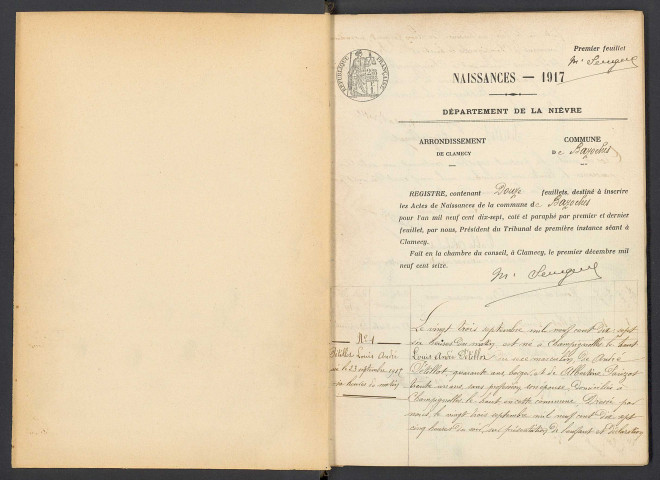 Premier feuillet
RÉPUBLIQUE FRANÇAISE
NAISSANCES — 1917
DÉPARTEMENT DE LA NIÈVRE
ARRONDISSEMENT
DE CLAMECY
COMMUNE
de Bazoches
REGISTRE, contenant Douze feuillets, destiné à inscrire
les Actes de Naissances de la commune de Bazoches
pour l'an mil neuf cent dix-sept, coté et paraphé par premier et dernier
feuillet, par nous, Président du Tribunal de première instance séant à
Clamecy.
Fait en la chambre du conseil, à Clamecy, le premier décembre mil
neuf cent seize.
No 1
Louis André
le 23 septembre 1917
heures du matin
Le vingt trois septembre mil neuf cent dix sept
six heures du matin, est né à Champignolle le haut
Louis André du sexe masculin, de André
quarante ans, et de Albertine
trente un ans, sans profession, son épouse, domiciliés à
Champignolle le haut en cette commune, Dressé par
nous, le vingt trois septembre mil neuf cent dix sept
cinq heures du soir, sur présentation de l'enfant et déclaration